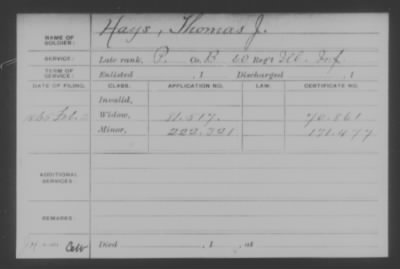 NAME OF SOLDIER: Hays, Thomas J.
SERVICE: Late rank, P. Co. B, 20 Reg't Ill. Inf.
TERM OF SERVICE: Enlisted , 1 Discharged , 1
DATE OF FILING. CLASS. APPLICATION NO. LAW. CERTIFICATE NO.
Invalid,
Widow, 11.517.
Minor, 222.721 171.477
ADDITIONAL SERVICES:
REMARKS:
Died , 1 , at